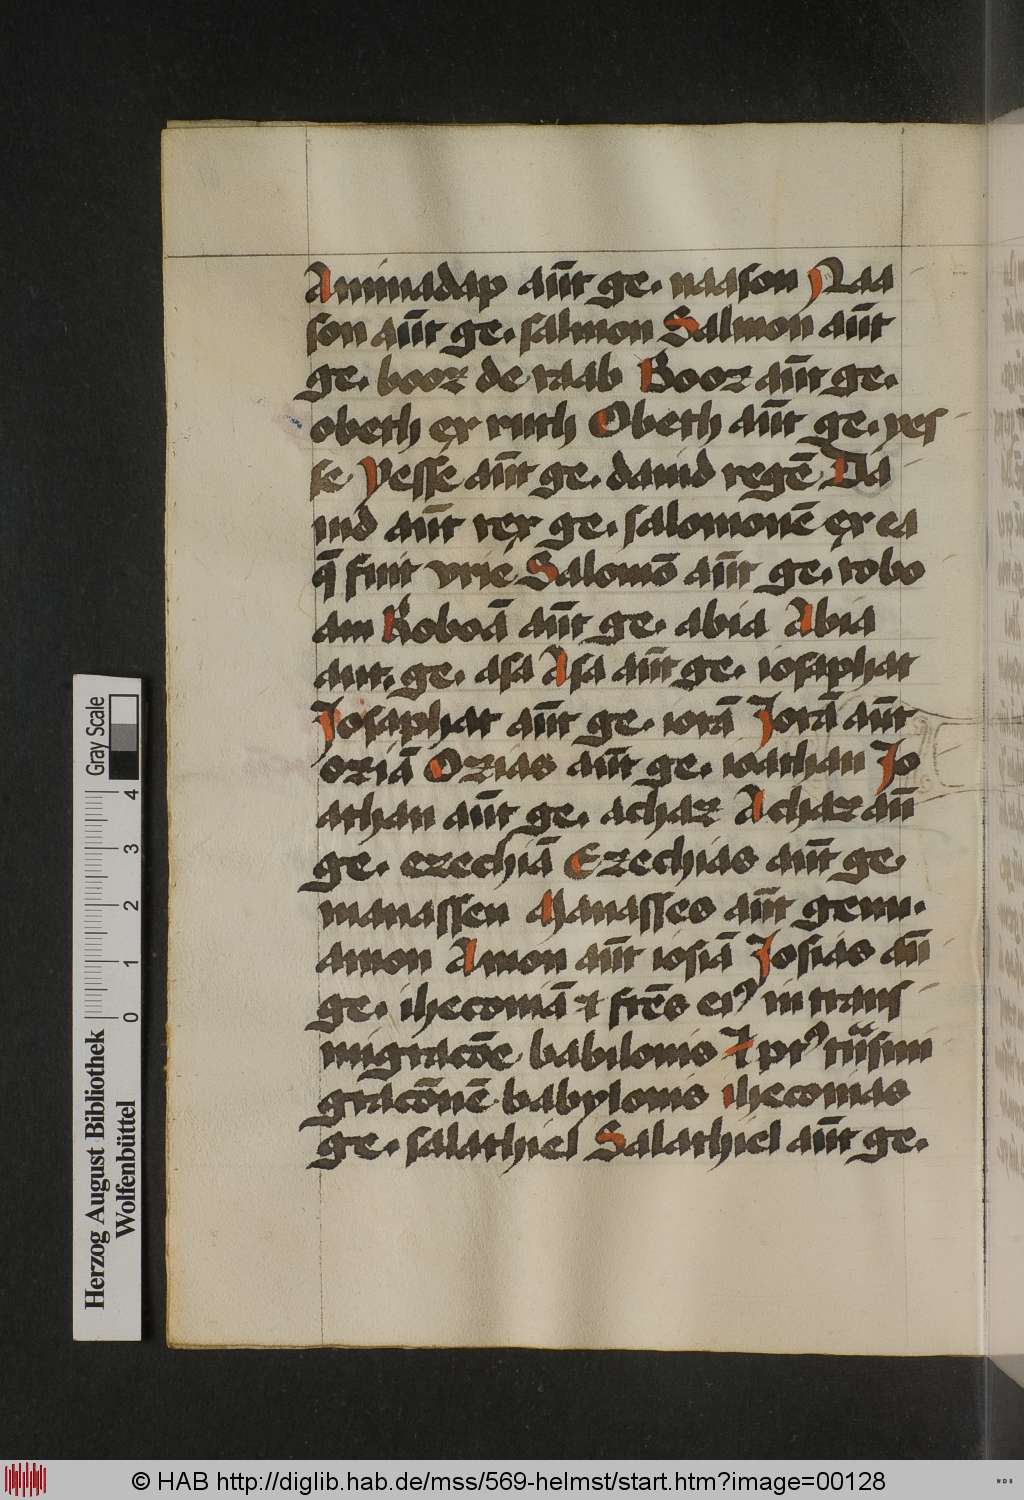 Aminadap aūt ge. naason Naa
son aūt ge. salmon Salmon aūt
ge. booz de raab Booz aūt ge.
obeth ex ruth Obeth aūt ge. yes
se Yesse aūt ge. dauid regē Da
uid aūt rex ge. salomonē ex ea
q̄ fuit vrie Salomō aūt ge. robo
am Roboā aūt ge. abia Abia
aut. ge. asa Asa aūt ge. iosaphat
Josaphat aūt ge. iorā Jorā aūt
oziā Ozias aūt ge. ioathan Jo
athan aūt ge. achaz Achaz aū
ge. ezechiā Ezechias aūt ge.
manassen Manasses aūt genu.
amon Amon aūt iosiā Josias aū
ge. iheconiā ⁊ frēs eiꝰ in trans
migracōe babilonis Et
gracōnē babylonis iheconias
ge. salathiel Salathiel aūt ge.
Gray Scale
0 1 2 3 4
Herzog August Bibliothek
Wolfenbüttel
© HAB http://diglib.hab.de/mss/569-helmst/start.htm?image=00128